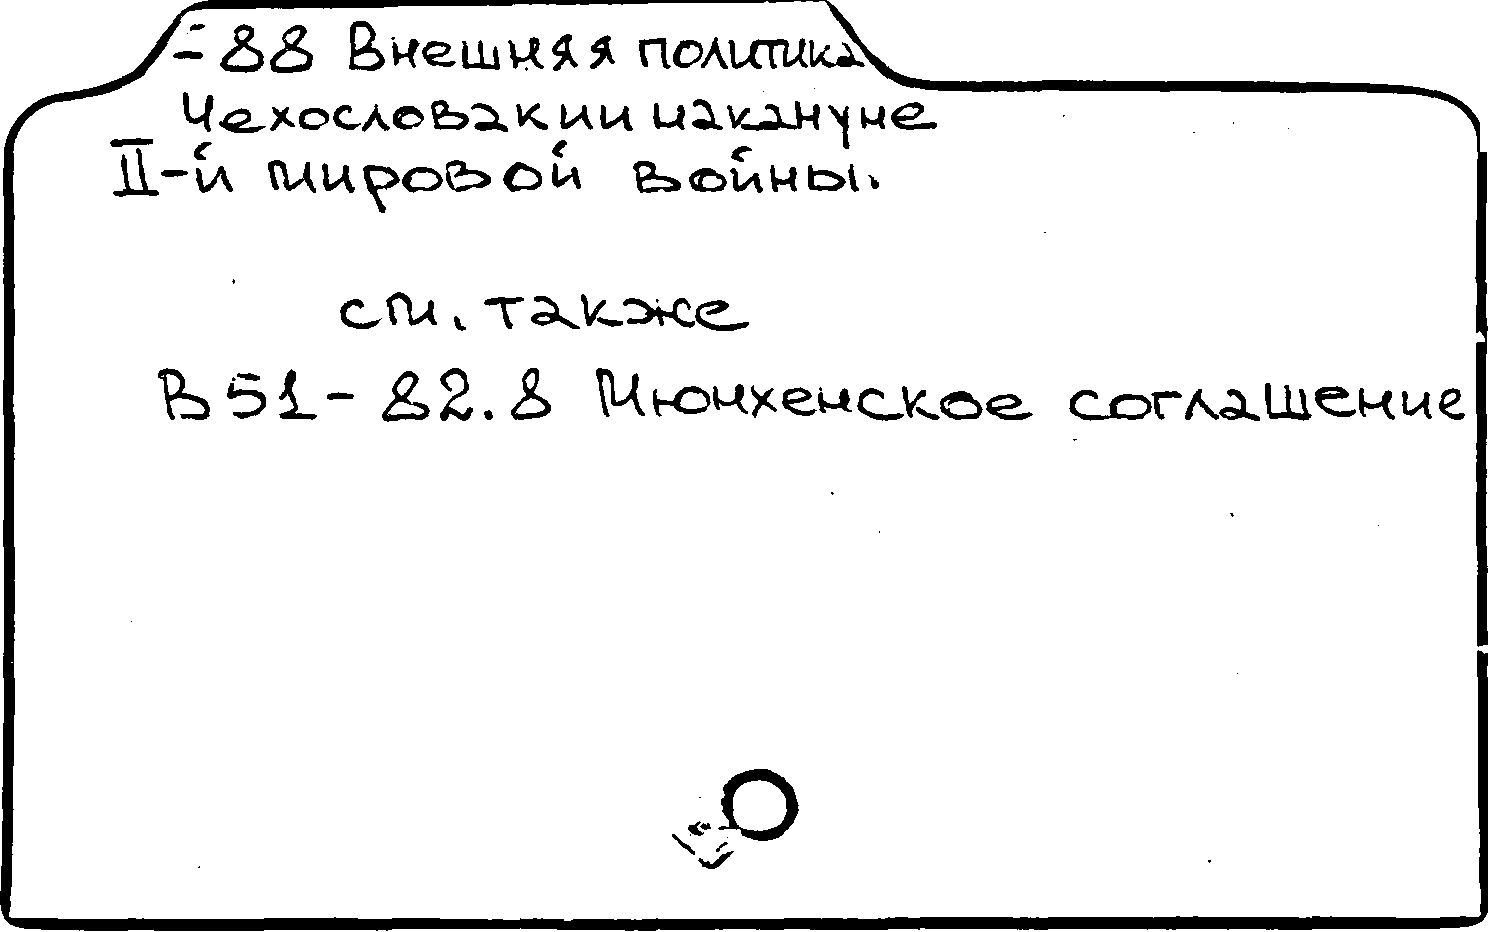 -88 Внешняя политика
Чехословакии накануне
II-й мировой войны.
см. также
В51-82.8 Мюнхенское соглашение